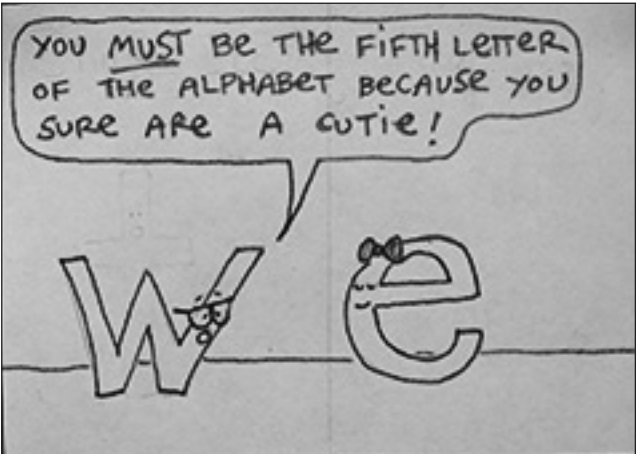 YOU MUST Be THe FiFTH LeTTeR
OF THe ALPHABeT BeCAUSe YOU
SURe ARe A CUTie!
W e